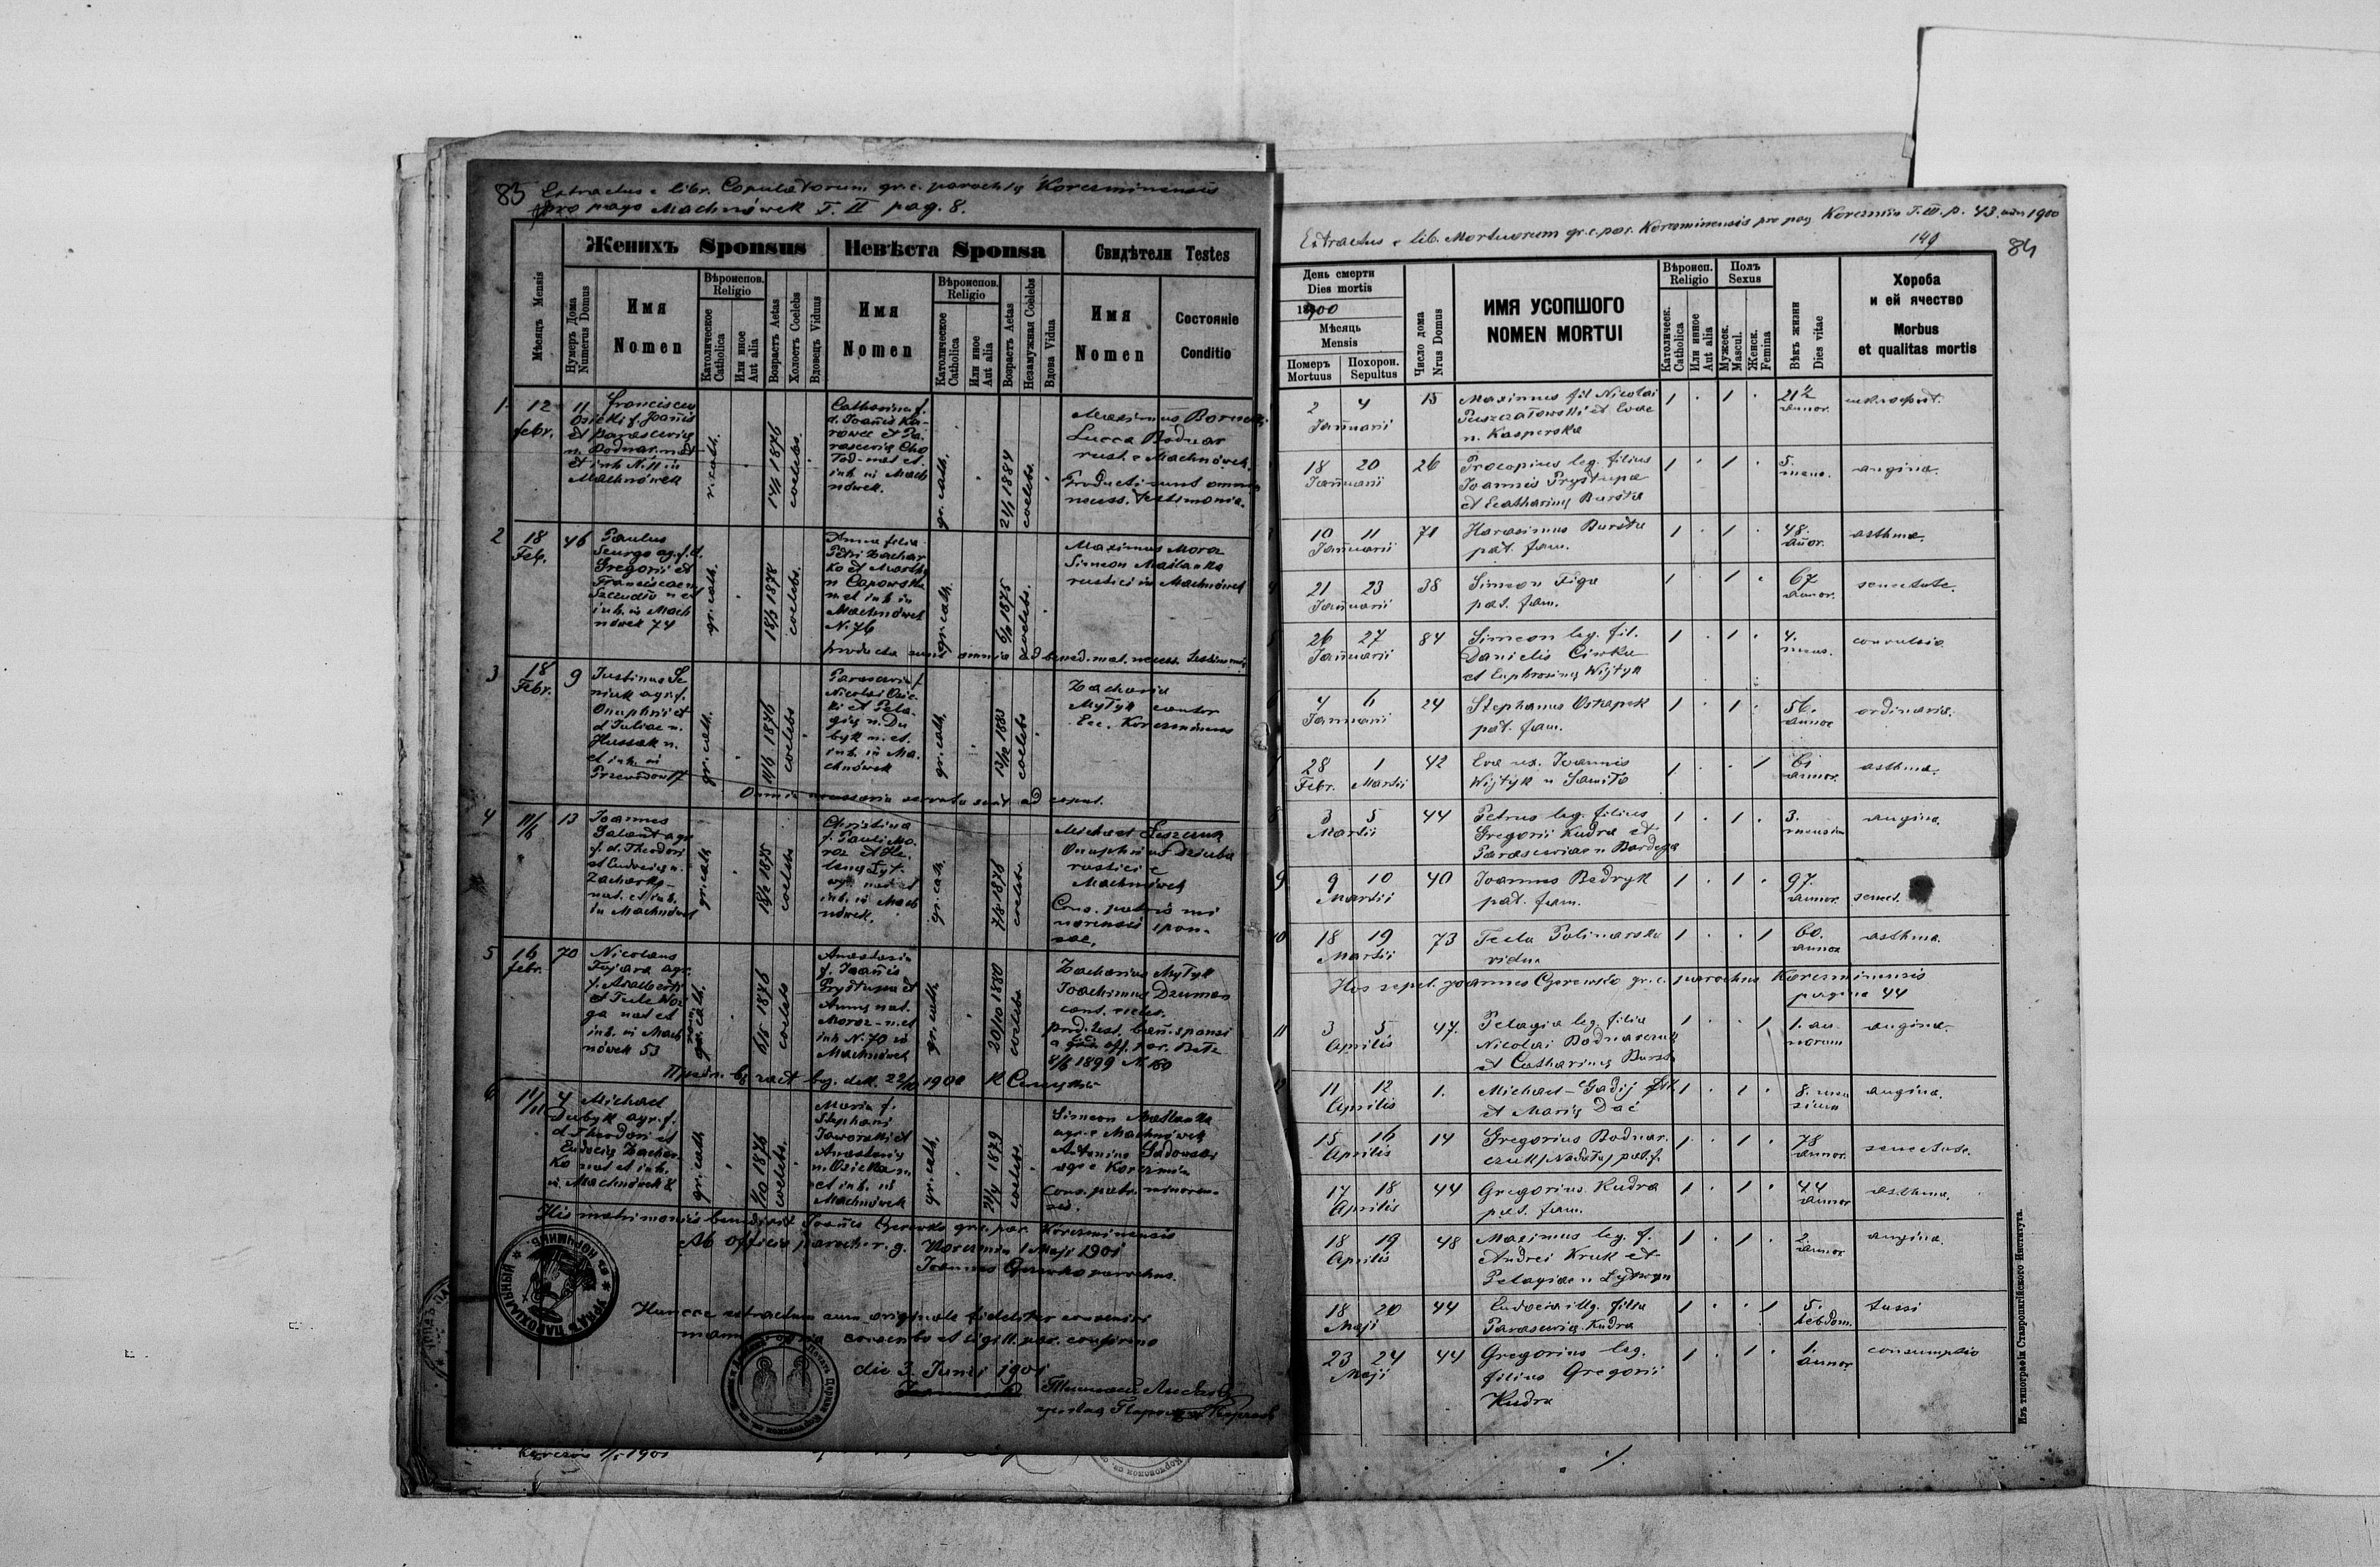 83
Extractus e libr. Copulatorum gr. c. parochiy Korczminensis
pro pago Machnówek T. II pag. 8.
Женихъ Sponsus
Невѣста Sponsa
Свидѣтели Testes
Мѣсяцъ Mensis
Нумеръ Дома
Numerus Domus
Имя
Nomen
Вѣроиспов.
Religio
Католическое
Catholica
Или иное
Aut alia
Возрастъ Aetas
Холостъ Coelebs
Вдовецъ Viduus
Имя
Nomen
Вѣроиспов.
Religio
Католическое
Catholica
Или иное
Aut alia
Возрастъ Aetas
Незамужная Coelebs
Вдова Vidua
Имя
Nomen
Состояніе
Conditio
1.
12
febr.
11
Franciscus
Osiecki f. Joañis
et Parasceviy
n. Bodnar nat.
et inh. N. 11 in
Machnówek
r. cath.
1876
coelebs.
Catharina f.
d. Joañis
et Pa-
rasceviy
nat. et
inh. in Mach
nówek.
gr. cath.
1884
coelebs.
Maximus
Lucca Bodnar
rust. e Machnówek.
Producti sunt omnia
necess. testimonia.
2
18
Feb.
46
Paulus
agr. f. d.
Gregorii et
n. et
inh. in Mach
nówek 74
gr. cath.
1878
coelebs.
Anna filia
Petri Zachar
ko et Marthy
n
n. et inh. in
Machnówek
N. 76
gr. cath.
1875
coelebs.
Maximus Moroz
Simeon Maślanka
rustici in Machnówek
producta sunt omnia ad bened. mat. necess. testimonia
3
18
Febr.
9
Justinus Se
niuk agr. f.
Onuphrii et
d Juliae n.
Hussak n.
et inh. in
Przewodów
gr. cath.
1876
coelebs
Parascevia f.
Nicolai Osiec
ki et Pela-
giy n. Du
byk n. et.
inh. in Ma.
chnówek
gr. cath.
13/12 1883
coelebs
Zacharia
Mytyk cantor
Ecc. Korczminens
Omnia necessaria servata sunt ad copul.
4
11/6
13
Joannes
Galant agr
f. d. Theodori
et Eudociy n.
Zacharko
nat. et inh.
in Machnówek
gr. cath.
1875
coelebs
Christina
f. Pauli Mo.
roz et He.
leny
nat et
inh. in Mach
nówek.
gr. cath.
7/8 1876
coelebs.
Michael
Onuphrius Dziuba
rustici e
Machnówek
Cons. patris mi
norensis spon-
sae.
5
16
febr.
70
Nicolaus
Fujara agr.
f. Adalberti
et Teclae
nat et
inh. in Mach
nówek 53
1876
coelebs
Anastasia
f. Joañis
Prystupa et
Anny nat.
Moroz - n. et
inh N. 70 in
Machnówek
gr. cath.
20/10 1880
coelebs.
Zacharius Mytyk
Joachimus Dzuman
cant. eccles.
prod. test. bañ. sponsi
a off. par. Bełz
8/6 1899 N. 150
1900
6
11/11
4
Michael
Dubyk agr. f.
d Theodori et
Eudociy Zachar.
ko nat et inh.
in Machnówek 8
gr. cath
1/10 1876
coelebs.
Maria f.
Stephani
Jaworski et
Anastasiy
n. Osiecka n.
et inh. in
Machnówek
gr. cath.
1879
coelebs.
Simeon Maślanka
agr. e Machnówek
Antonius Sadowski
agr e Korczmin
Cons. patr. minoren-
sis.
His matrimoniis benedixit Joañes Czerewko gr. c. par. Korczminensis
Ab officio paroch. r. g. Korczmin 1 Maji 1901
Joannes Czerewko parochus.
Huncce extractum cum originale fideliter consentire
manu propria conscribo et sigill. par. confirmo
die 3. Junii 1901
Korczmin 1/5 1901
Extractus e lib. Mortuorum gr. c. par. Korczminensis pro pag Korczmin T. III. p. 43. 1900
149
84
День смерти
Dies mortis
1900
Мѣсяць
Mensis
Померъ
Mortuus
Похорон.
Sepultus
Число дома
Nrus Domus
ИМЯ УСОПШОГО
NOMEN MORTUI
Вѣроисп.
Religio
Католическ.
Catholica
Или инное
Aut alia
Полъ
Sexus
Мужеск.
Mascul.
Женск.
Femina
Вѣкъ жизни
Dies vitae
Хороба
и ей ячество
Morbus
et qualitas mortis
2 4
Januarii
15
Maximus fil Nicolai
et Evae
n. Kasperska
1 . 1 .
21½
annor.
18 20
Januarii
26
Procopius leg. filius
Joannis Prystupa
et Catharinys Bursta
1 . 1 .
5.
mens.
angina.
10 11
Januarii
71
Harasimus Bursta
pat. fam.
1 . 1 .
48.
añor.
asthma.
21 23
Januarii
38
Simeon Figa
pat. fam.
1 . 1 .
67
annor.
senectute.
26 27
Januarii
84
Simeon leg. fil.
Danielis
et Euphrosiny Wijtyk
1 . 1 .
4.
mens.
convulsio
4 6
Januarii
24
Stephanus Ostapek
pat. fam.
1 . 1 .
56.
annor
ordinaria.
28 1
Febr. Martii
42
Eva ux. Joannis
Wijtyk n
1 . . 1
61
annor.
asthma.
3 5
Martii
44
Petrus leg. filius
Gregorii Kudra et
Parasceviae n
1 . 1 .
3.
mensium
angina.
9
9 10
Martii
40
Joannes Bedryk
pat. fam.
1 . 1 .
97.
annor.
senect.
10
18 19
Martii
73
Tecla Polinarska
vidua
1 . . 1
60.
annor
asthma.
Hos sepel. Joannes Czerewko gr. c. parochus Korczminensis
pagina 44
11
3 5
Aprilis
47.
Pelagia leg. filia
Nicolai Bodnarczuk
et Catharinys Bursta
1 . . 1
1. an
norum
angina.
12
11 12
Aprilis
1.
Michael Gadij
et Mariy Dać
1 . 1 .
8. men
sium
angina.
15 16
Aprilis
14
Gregorius Bodnar.
czuk pat. f.
1 . 1 .
78
annor.
senectute.
17 18
Aprilis
44
Gregorius Kudra
pat. fam.
1 . 1 .
44
annor
asthma.
18 19
Aprilis
48
Maximus leg. f.
Andrei Kruk et
Pelagiae n
1 . 1 .
2.
annor
angina.
18 20
Maji
44
Eudocia illeg. filia
Parasceviy Kudra
1 . . 1
5.
hebdom.
tussi
23 24
Maji
44
Gregorius leg.
filius Gregorii
Kudra
1 . 1 .
1.
annor
consumptio
Изъ типографіи Ставропигійского Института.